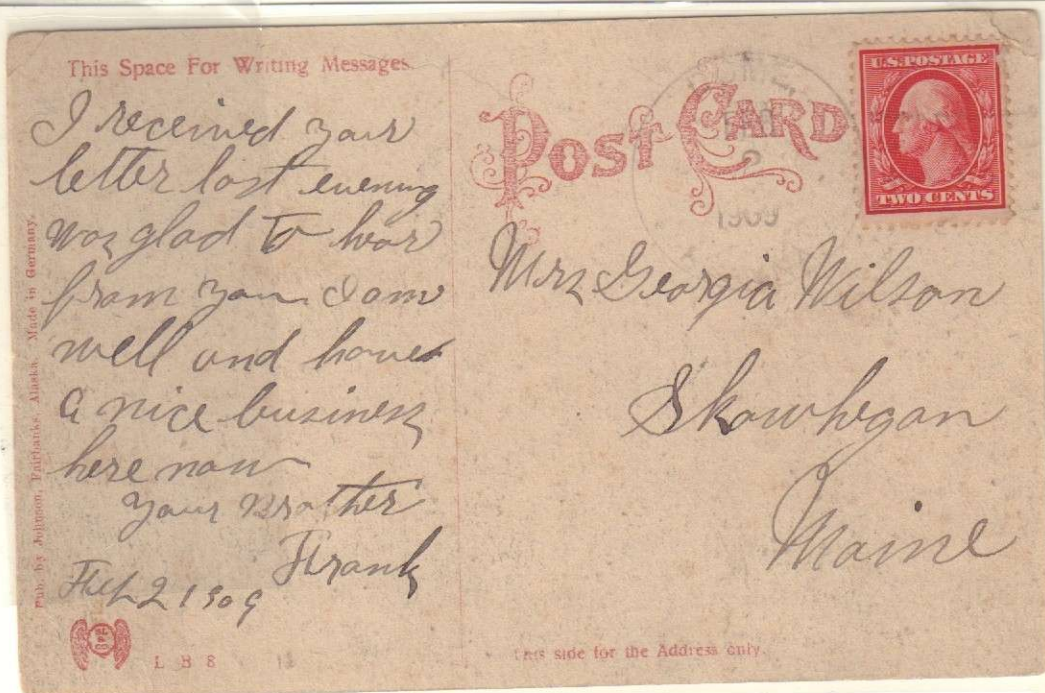 This Space For Writing Messages
I received your
letter last evening
was glad to hear
from you I am
well and have
a nice business
here now
Your Brother
Frank
Feb 2 1909
Pub. by Johnson, Fairbanks, Alaska. Made in Germany.
L B 8
12
POST CARD
1909
U.S. POSTAGE
TWO CENTS
Mrs Georgia Wilson
Skowhegan
Maine
This side for the Address only.